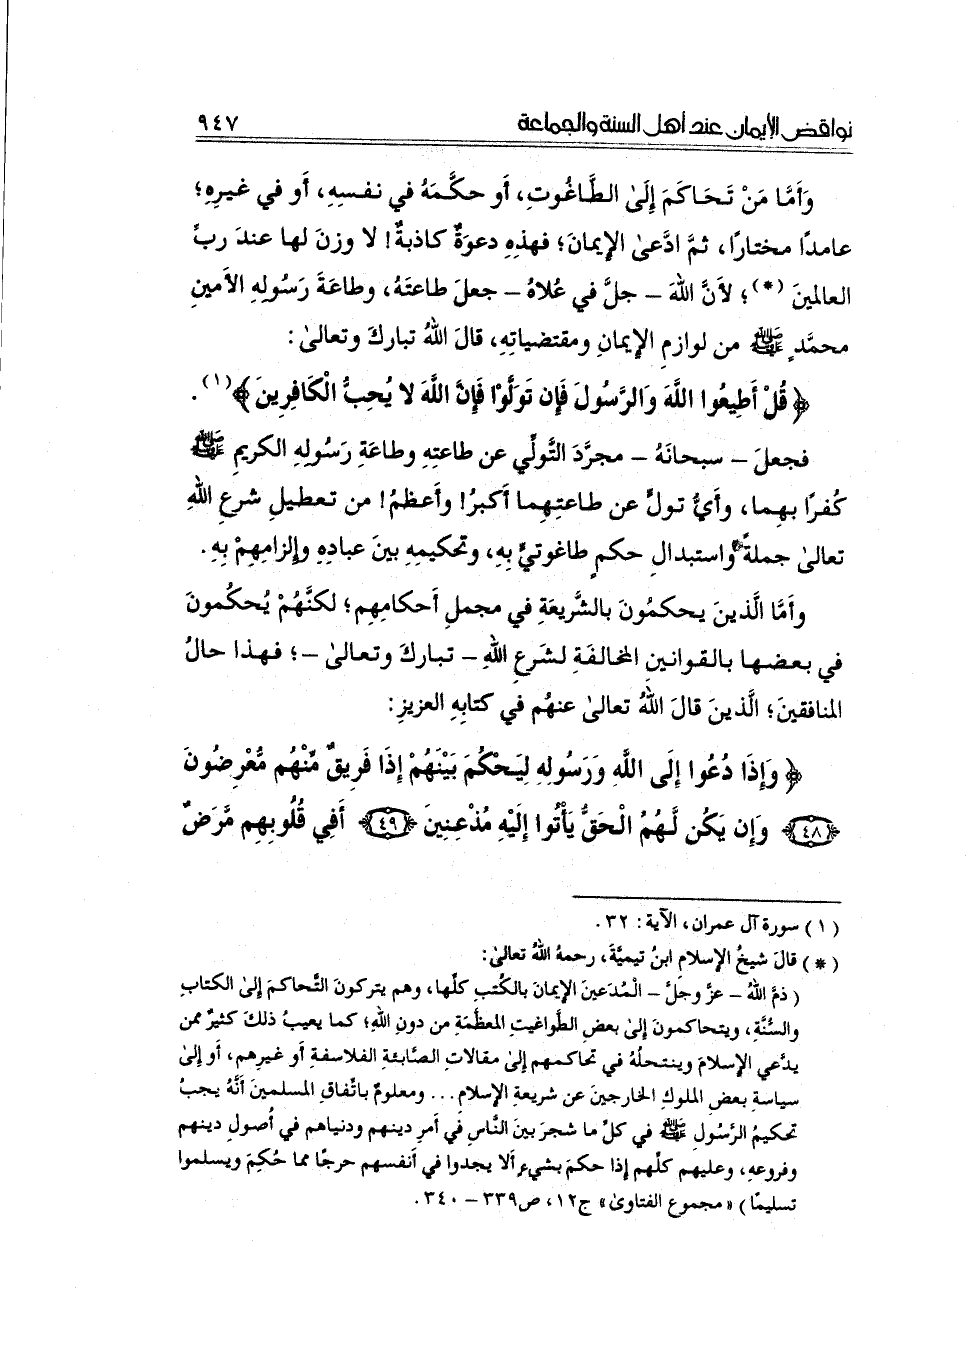 نواقض الإيمان عند أهل السنة والجماعة ٩٤٧
وَأَمَّا مَنْ تَحَاكَمَ إِلَىٰ الطَّاغُوتِ، أَو حكَّمَهُ في نفسِهِ، أَو في غيرِهِ؛
عامدًا مختارًا، ثمَّ ادَّعىٰ الإِيمانَ؛ فهذهِ دعوَةٌ كاذبةٌ! لا وزنَ لها عندَ ربِّ
العالمينَ (*)؛ لأَنَّ اللهَ – جلَّ في عُلاهُ – جعلَ طاعتَهُ، وطاعَةَ رَسُولِهِ الأَمينِ
محمَّدٍ ﷺ من لوازمِ الإِيمانِ ومقتضياتِهِ، قالَ اللهُ تباركَ وتعالىٰ:
﴿قُلْ أَطِيعُوا اللَّهَ وَالرَّسُولَ فَإِن تَوَلَّوْا فَإِنَّ اللَّهَ لا يُحِبُّ الْكَافِرِينَ﴾(١).
فجعلَ – سبحانَهُ – مجرَّدَ التَّولِّي عن طاعتِهِ وطاعَةِ رَسُولِهِ الكريمِ ﷺ
كُفرًا بهما، وأَيُّ تولٍّ عن طاعتِهِما أَكبرُ! وأَعظمُ! من تعطيلِ شرعِ اللهِ
تعالىٰ جملةً واستبدالِ حكمٍ طاغوتيٍّ بِهِ، وتحكيمِهِ بينَ عبادِهِ وإِلزامِهِمْ بِهِ.
وأَمَّا الَّذينَ يحكمُونَ بالشَّريعَةِ في مجملِ أَحكامِهِم؛ لكنَّهُمْ يُحكُمونَ
في بعضِها بالقوانينِ المخالفَةِ لشَرعِ اللهِ – تباركَ وتعالىٰ –؛ فهذا حالُ
المنافقينَ؛ الَّذينَ قالَ اللهُ تعالىٰ عنهُم في كتابِهِ العزيزِ:
﴿وَإِذَا دُعُوا إِلَى اللَّهِ وَرَسُولِهِ لِيَحْكُمَ بَيْنَهُمْ إِذَا فَرِيقٌ مِّنْهُم مُّعْرِضُونَ
﴿٤٨﴾ وَإِن يَكُن لَّهُمُ الْحَقُّ يَأْتُوا إِلَيْهِ مُذْعِنِينَ ﴿٤٩﴾ أَفِي قُلُوبِهِم مَّرَضٌ
(١) سورة آل عمران، الآية: ٣٢.
(*) قالَ شيخُ الإِسلامِ ابنُ تيميَّةَ، رحمهُ اللهُ تعالىٰ:
(ذمَّ اللهُ – عزَّ وجَلَّ – الْمُدَعينَ الإِيمانَ بالكُتبِ كلِّها، وهم يتركونَ التَّحاكمَ إِلىٰ الكتابِ
والسُّنَّةِ، ويتحاكمونَ إِلىٰ بعضِ الطَّواغيتِ المعظَّمَةِ من دونِ اللهِ؛ كما يعيبُ ذلكَ كثيرٌ ممن
يدَّعي الإِسلامَ وينتحلُهُ في تحاكمِهم إِلىٰ مقالاتِ الصَّابئةِ الفلاسفةِ أَو غيرِهم، أَو إِلىٰ
سياسةِ بعضِ الملوكِ الخارجينَ عن شريعةِ الإِسلامِ... ومعلومٌ باتِّفاقِ المسلمينَ أَنَّهُ يجبُ
تحكيمُ الرَّسُولِ ﷺ في كلِّ ما شجرَ بينَ النَّاسِ في أَمرِ دينِهم ودنياهم في أُصولِ دينِهم
وفروعِهِ، وعليهم كلِّهم إِذا حكمَ بشيءٍ أَلا يجدوا في أَنفسهم حرجًا مما حُكِمَ ويسلموا
تسليمًا) «مجموع الفتاوىٰ» ج١٢، ص٣٣٩ – ٣٤٠.